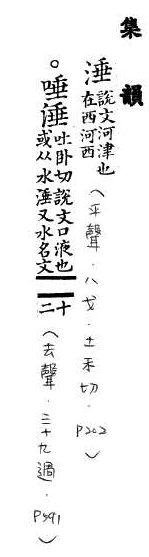 集韻
涶說文河津也在西河西(平聲.八戈.土禾切.P202)
。唾涶吐臥切說文口液也或从水涶又水名文十二(去聲.三十九過.P591)